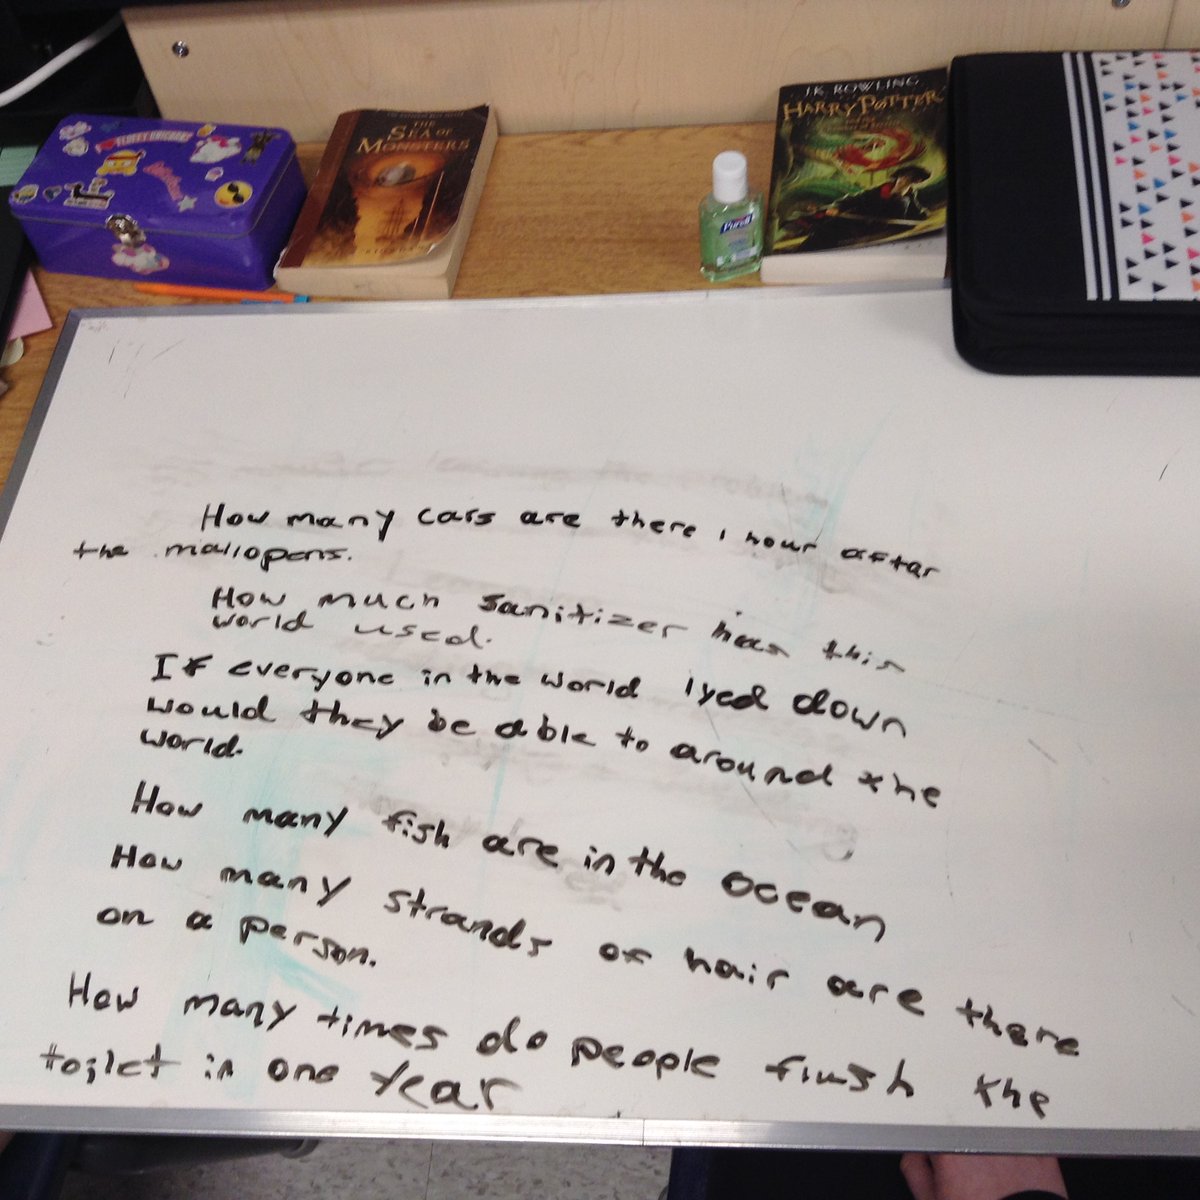 FLUFFY UNICORNS
THE
SEA OF
MONSTERS
J.K. ROWLING
HARRY POTTER
Purell
How many cars are there 1 hour after
the mall opens.
How much sanitizer has this
world used.
If everyone in the world lyed down
would they be able to around the
world.
How many fish are in the ocean
How many strands of hair are there
on a person.
How many times do people flush the
toilet in one year